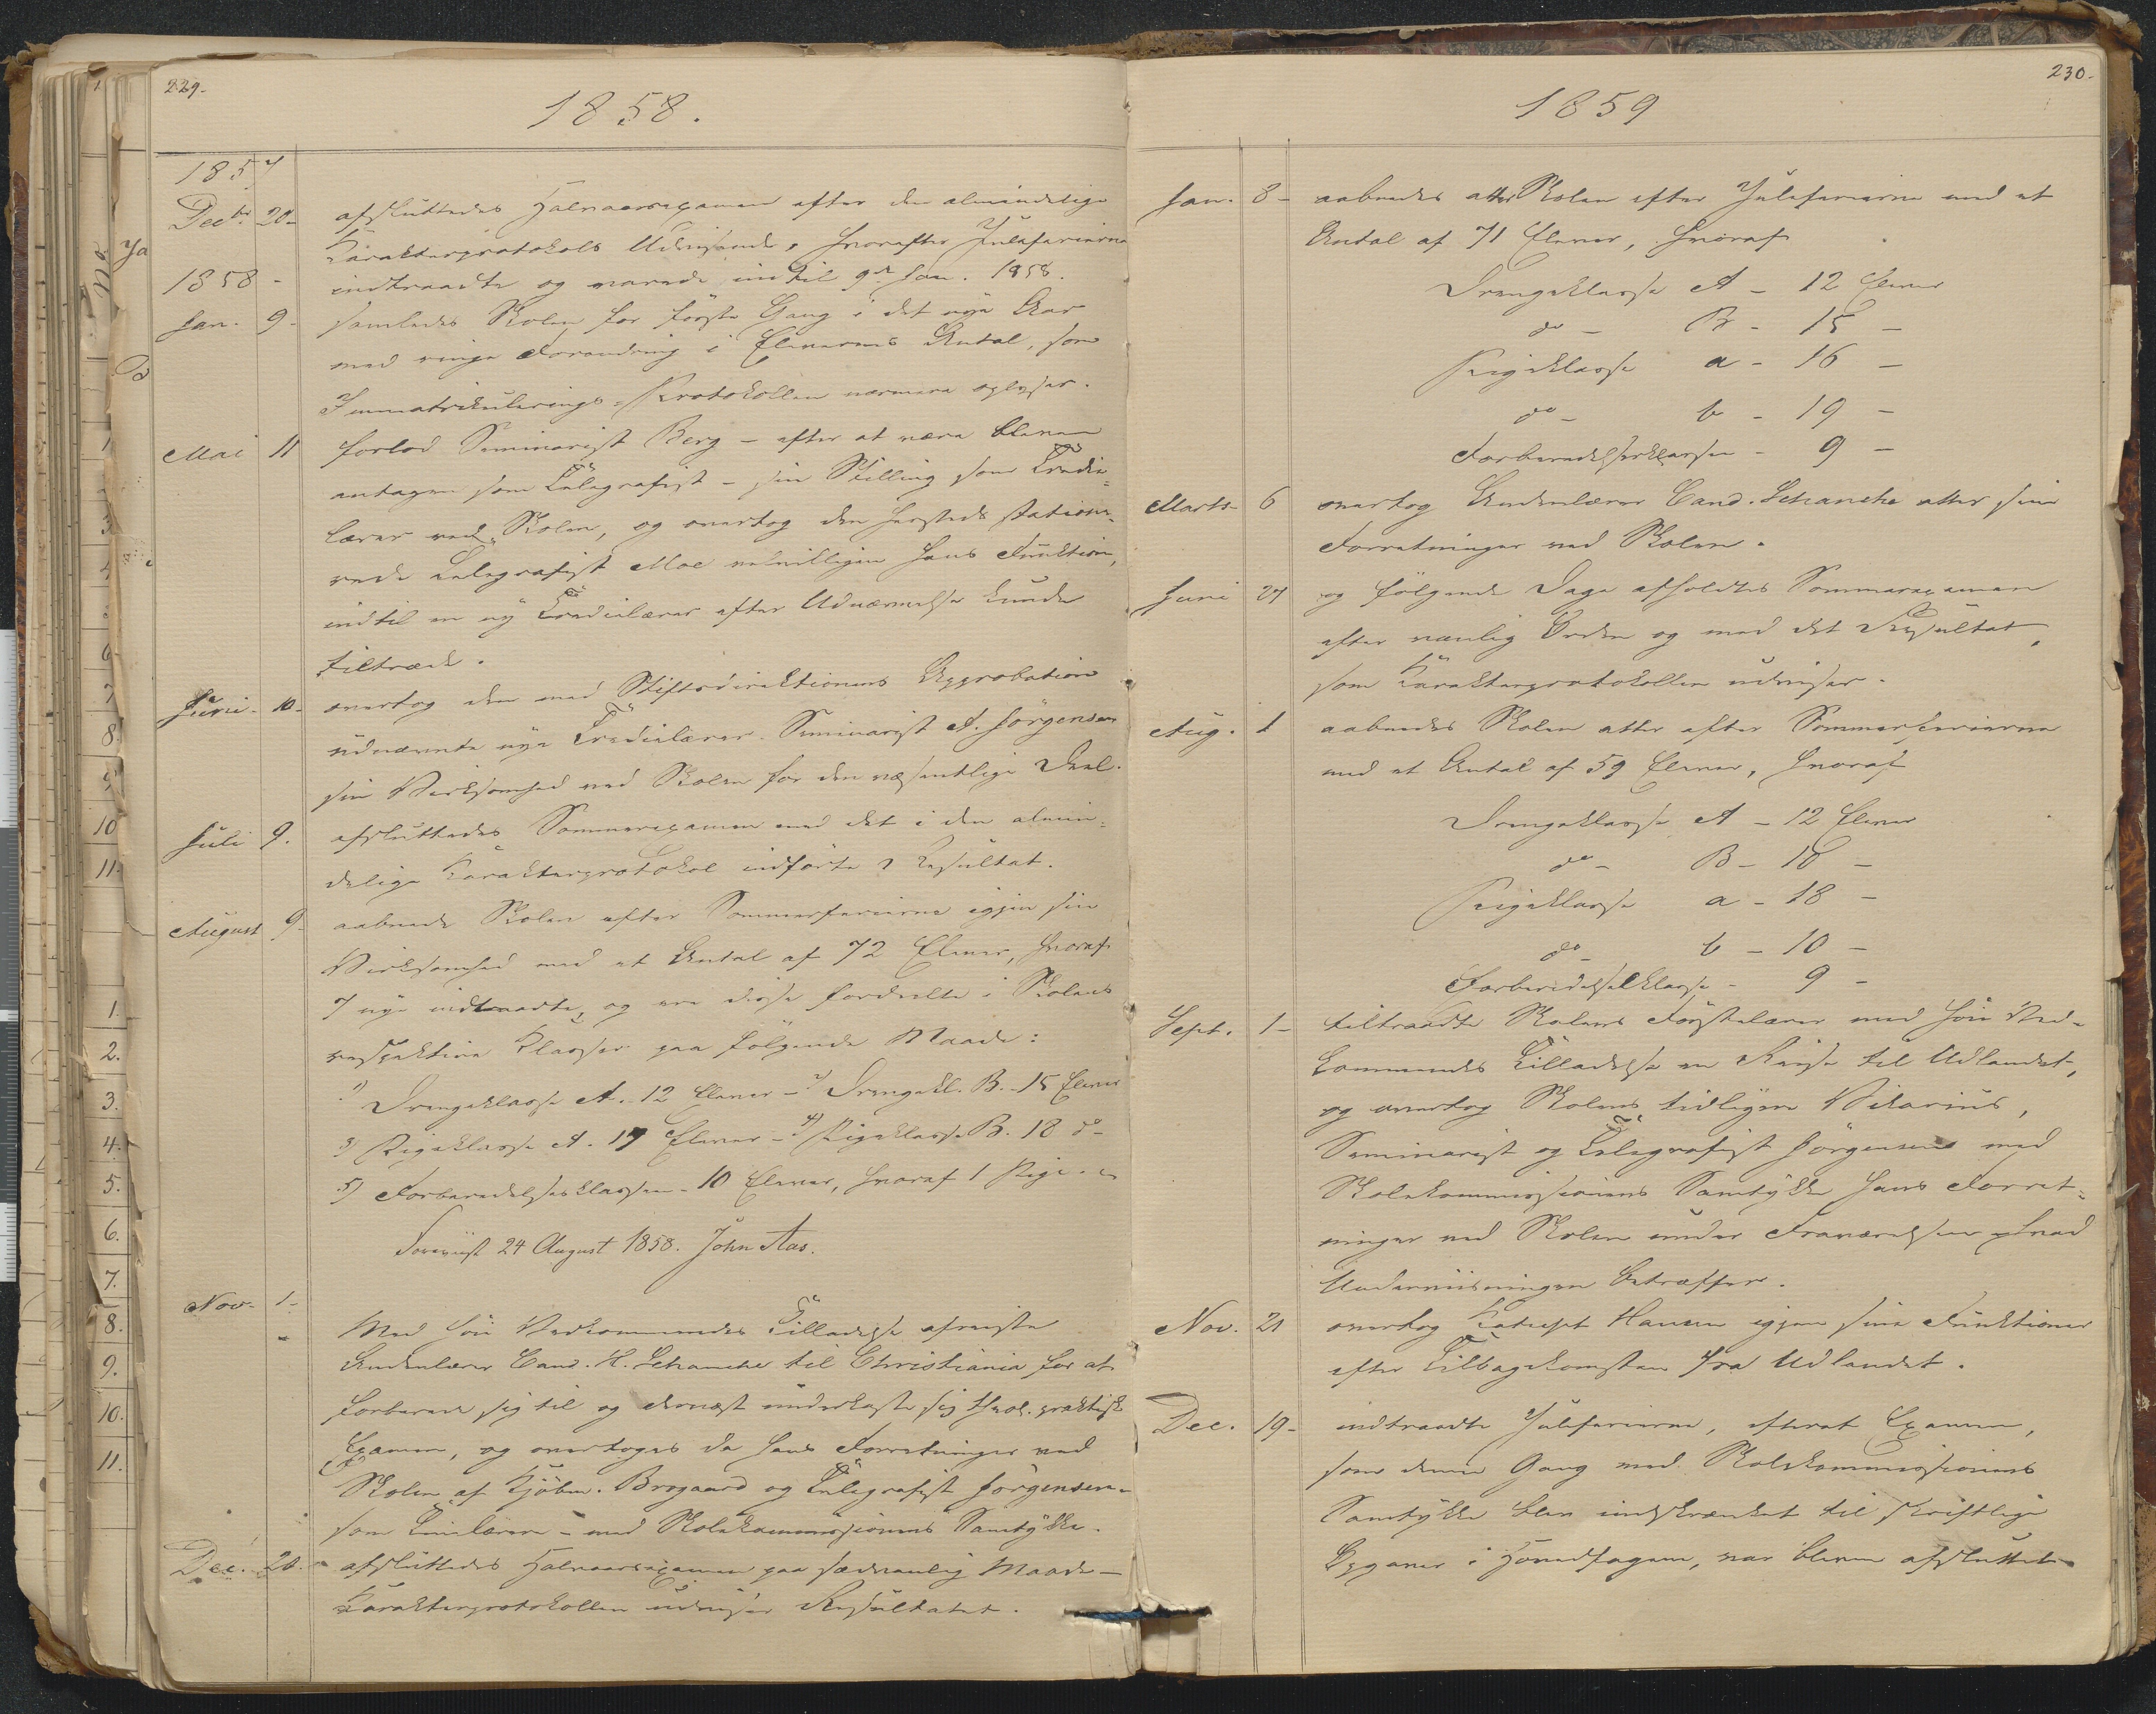 229.
1858.
1857
Decbr. 20- afsluttedes Halvaarsexamen efter den almindelige
Karakterprotokols Udvisende, hvorefter Juleferierne
1858- indtraadte og varede indtil 9de Jan. 1858.
Jan. 9- samledes Skolen for første Gang i det nye Aar
med ringe Forandring i Elevernes Antal, som
Immatrikulerings-Protokollen nærmere oplyser.
Mai 11 forlod Seminarist Berg - efter at være bleven
antagen som Telegrafist - sin Stilling som Tredie-
lærer ved Skolen, og overtog den hersteds statione-
rede Telegrafist Moe velvilligen hans Funktion,
indtil en ny Tredielærer efter Udnævnelse kunde
tiltræde.
Juni- 10- overtog den med Stiftsdirektionens Approbation
udnævnte nye Tredielærer Seminarist A. Jørgensen
sin Virksomhed ved Skolen for den væsentlige Deel.
Juli 9. afsluttedes Sommerexamen med det i den almin-
delige Karakterprotokol indførte Resultat.
August 9- aabnede Skolen efter Sommerferierne igjen sin
Virksomhed med et Antal af 72 Elever, hvoraf
7 nye indtraadte, og ere disse fordeelte i Skolens
respektive Klasser paa følgende Maade:
1) Drengeklasse A. 12 Elever - 2) Drengekl. B. - 15 Elever
3) Pigeklasse A. 17 Elever - 4) Pigeklasse B. 18 do-
5) Forberedelsesklassen - 10 Elever, hvoraf 1 Pige.
Foreviist 24 August 1858. John Aas.
Nov- 1-
Med høie Vedkommendes Tilladelse afreiste
Andenlærer Cand. H. Schanche til Christiania for at
forberede sig til og dernæst underkaste sig theol. praktisk
Examen, og overtoges da hans Forretninger ved
Skolen af Kjøbm. Brogaard og Telegrafist Jørgensen-
som Timelærere - med Skolekommissionens Samtykke.
Dec. 20. afsluttedes Halvaarsexamen paa sædvanlig Maade -
Karakterprotokollen udviser Resultatet.
230.
1859
Jan. 8- aabnedes atter Skolen efter Juleferierne med et
Antal af 71 Elever, hvoraf
Drengeklasse A - 12 Elever
do - B - 15 -
Pigeklasse a - 16 -
do - b - 19 -
Forberedelsesklassen - 9 -
Marts- 6 overtog Andenlærer Cand. Schanche atter sine
Forretninger ved Skolen.
Juni 27 og følgende Dage afholdtes Sommerexamen
efter vanlig Orden og med det Resultat,
som Karakterprotokollen udviser.
Aug. 1 aabnedes Skolen atter efter Sommerferierne
med et Antal af 59 Elever, hvoraf
Drengeklasse A - 12 Elever
do - B - 10 -
Pigeklasse a - 18 -
do - b - 10 -
Forberedelsesklasse - 9 -
Sept. 1- tiltraadte Skolens Førstelærer med høie Ved-
kommendes Tilladelse en Reise til Udlandet,
og overtog Skolens tidligere Vikarius,
Seminarist og Telegrafist Jørgensen med
Skolekommissionens Samtykke hans Forret-
ninger ved Skolen under Fraværelsen hvad
Underviisningen betræffer.
Nov. 21 overtog Kateket Hansen igjen sine Funktioner
efter Tilbagekomsten fra Udlandet.
Dec. 19- indtraadte Juleferierne, efterat Examen,
som denne Gang med Skolekommissionens
Samtykke blev indskrænket til skriftlige
Opgaver i Hovedfagene, var bleven afsluttet.